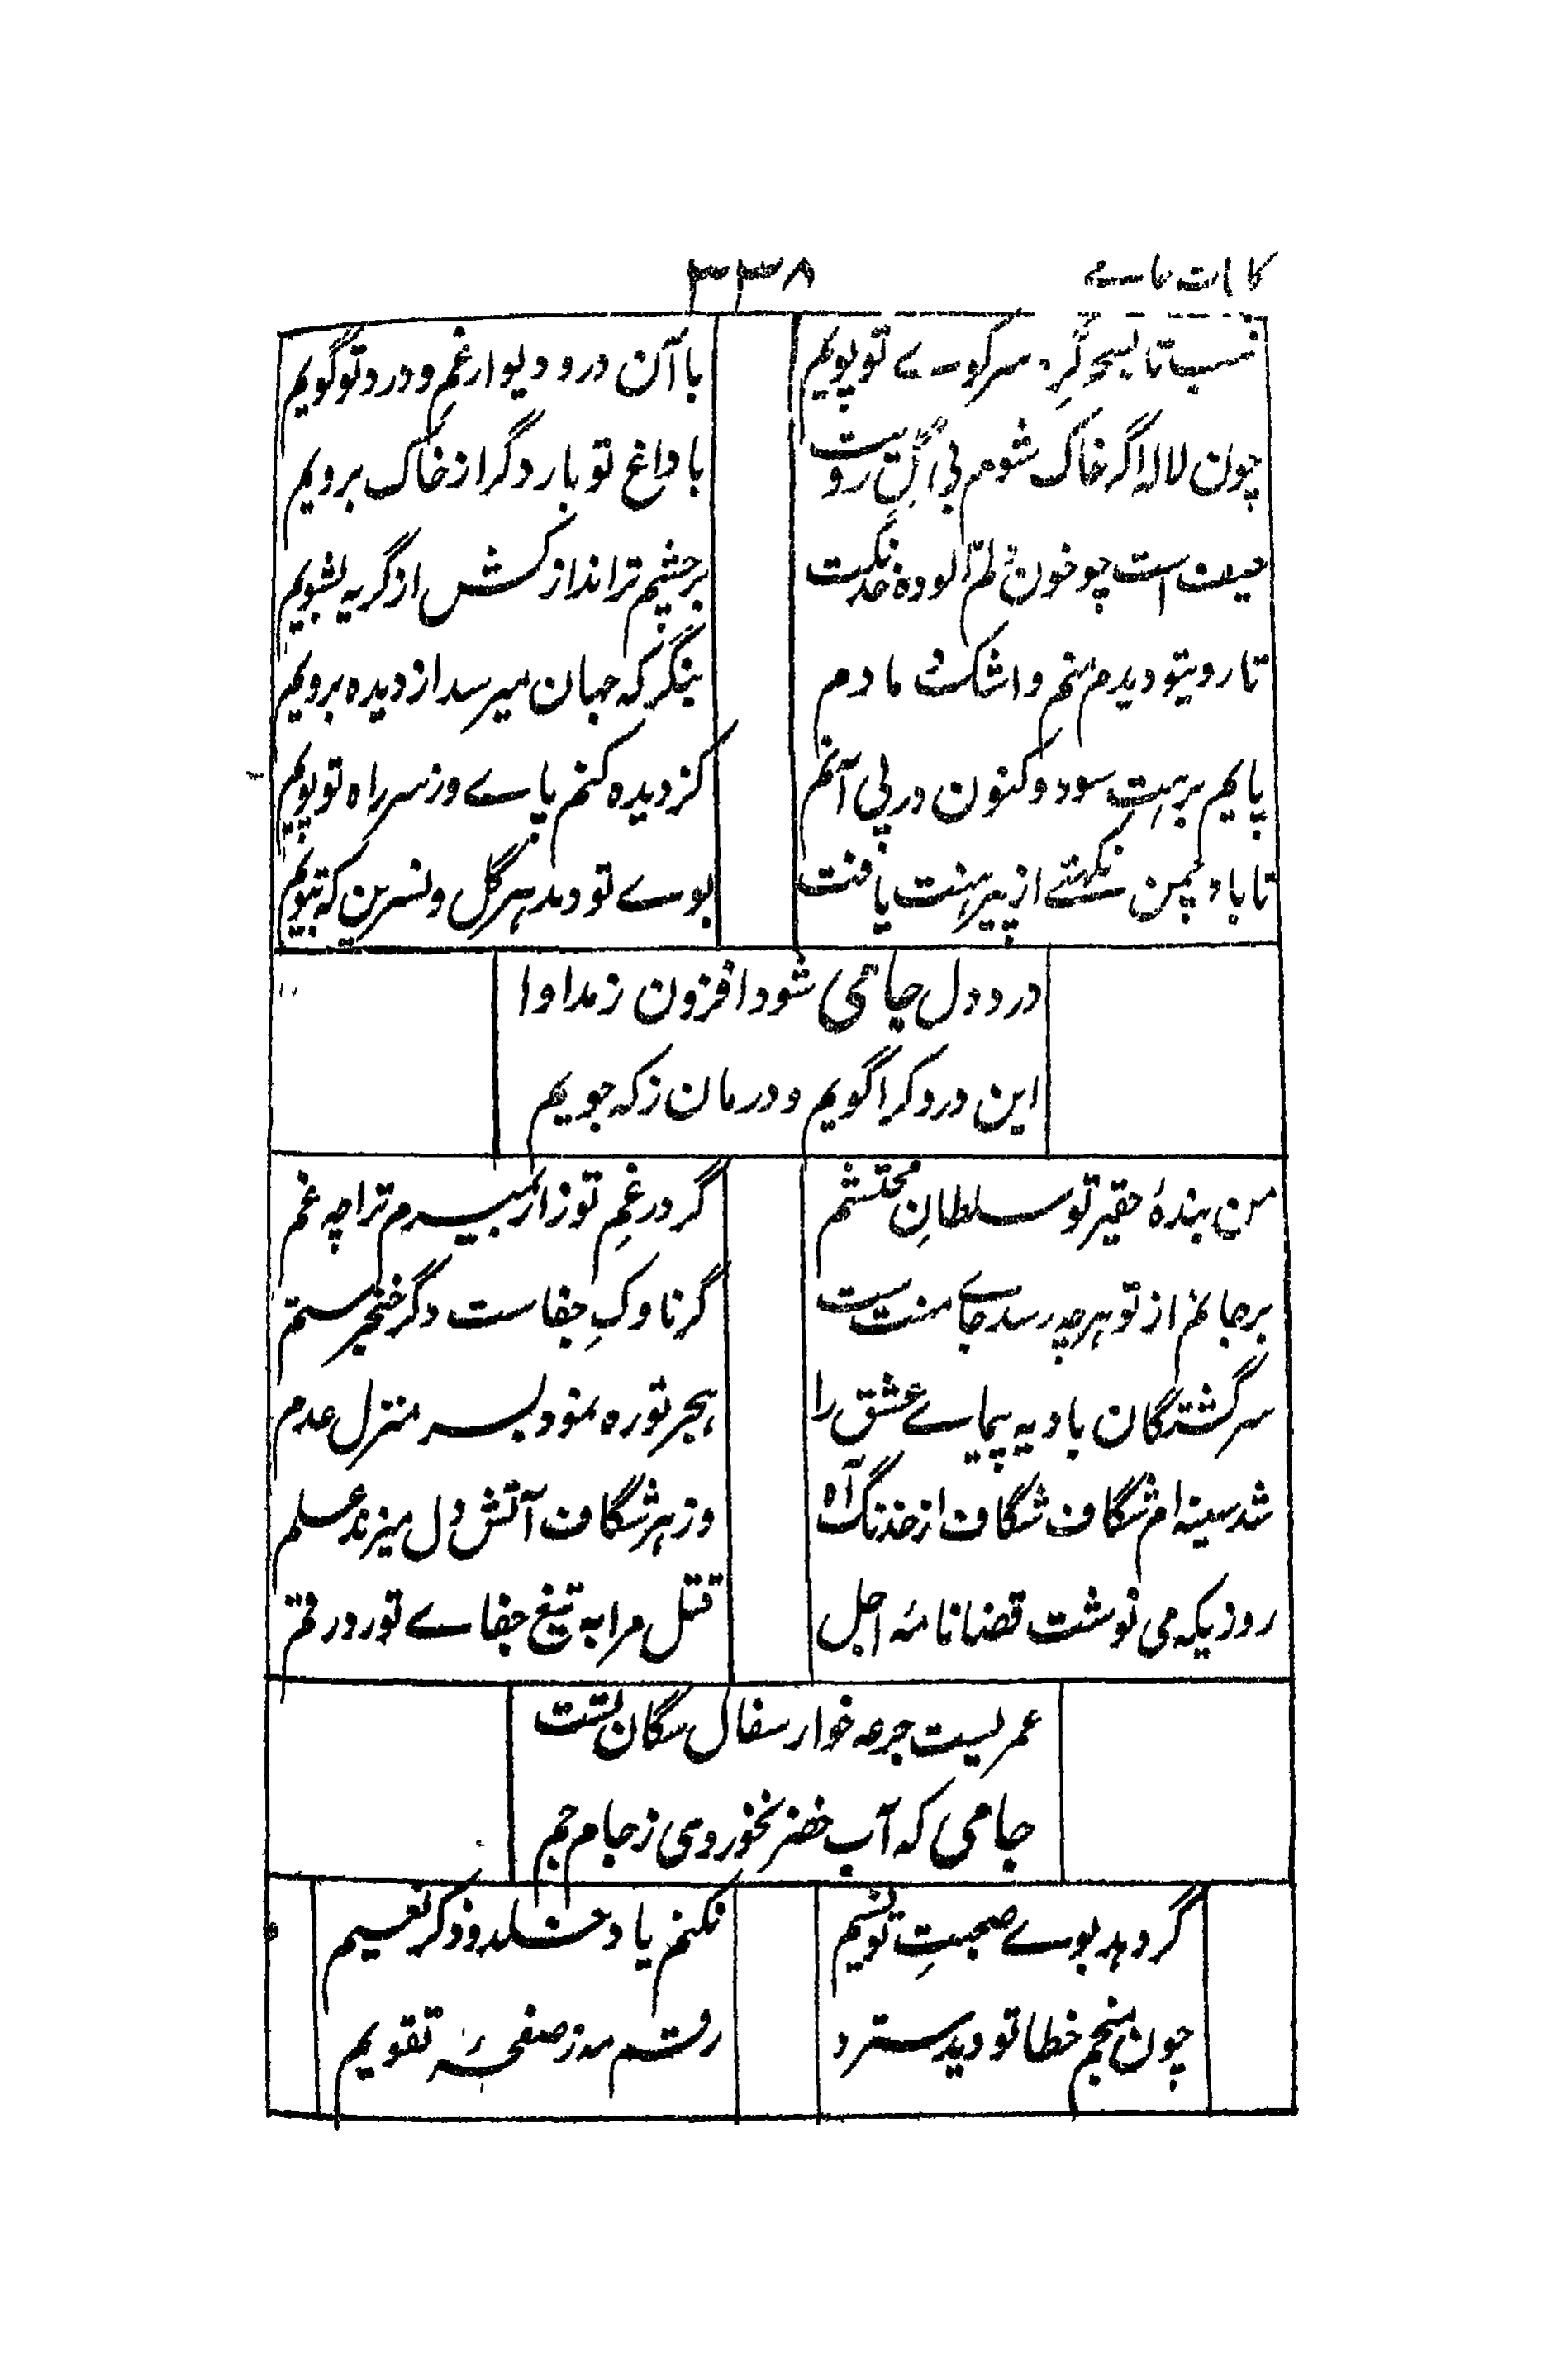 ۳۳۸
تا بسحر گرد سر کوے تو پویم
با آن در و دیوار غم و درد تو گویم
چون لاله اگر خاک شوم بی گل رویت
با داغ تو بار دگر از خاک برویم
است چو خون دلم آلوده خدنگت
بر چشم تر انداز کش از گریه بشویم
تا رویتو دیدم منم و اشک دمادم
بنگر که جهان میرسد از دیده برویم
پایم برهت سود و کنون در پی آنم
کز دیده کنم پاے وز سر راه تو پویم
تا باد چمن نکهتے از پیرهنت یافت
بوے تو دمد هر گل و نسرین که ببویم
درد دل جامی شود افزون ز مداوا
این درد کرا گویم و درمان ز که جویم
من بندهٔ حقیر تو سلطانِ محتشم
گر در غمِ تو زار بمیرم ترا چه غم
بر جانم از تو هرچه رسد جاے منت ست
گر ناوکِ جفاست دگر خنجر ستم
سر گشتگان بادیه پیماے عشق را
هجر تو ره نمود بسر منزل عدم
شد سینه ام شگاف شگاف از خدنگ آه
وز هر شگاف آتش دل میزند علم
روزیکه می نوشت قضا نامهٔ اجل
قتل مرا به تیغ جفاے تو زد رقم
عمریست جرعه خوار سفال سگان تست
جامی که آب خضر نخوردی ز جام جم
گر دهد بوے صحبتِ تو نسیم
نکنم یاد خلد و ذکر نعیم
چون منجم خط تو دید سترد
رقم مه ز صفحهٔ تقویم